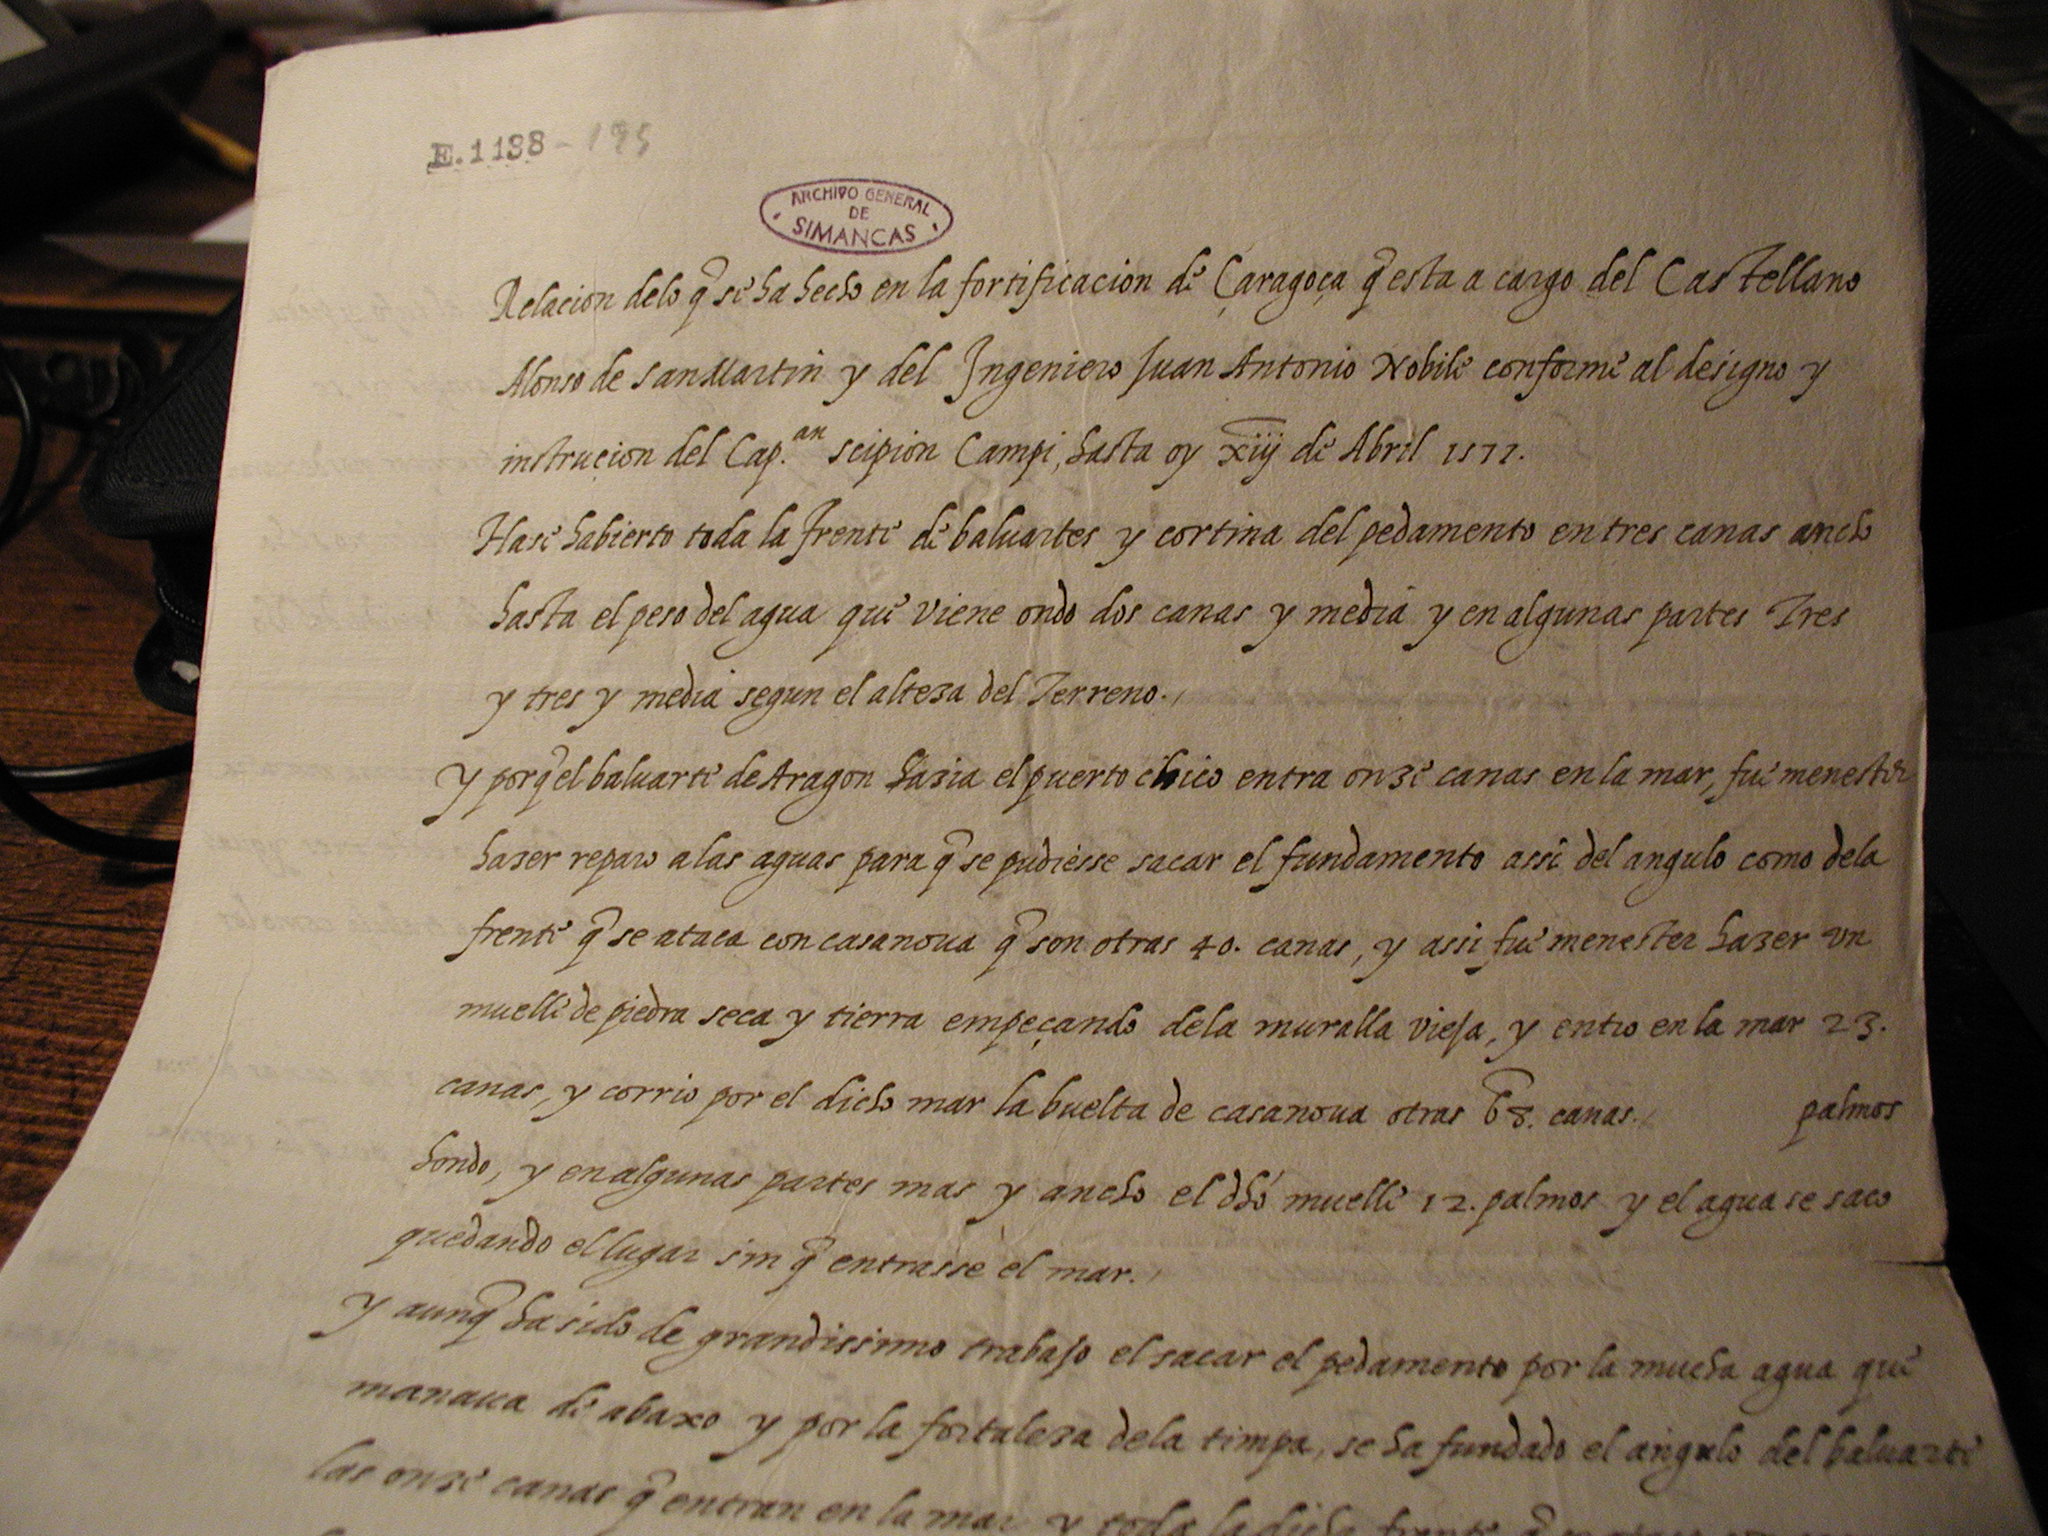 E.1138-195
ARCHIVO GENERAL
DE
SIMANCAS
Relacion delo q̃ se ha hecho en la fortificacion de Çaragoça q̃ esta a cargo del Castellano
Alonso de sanMartin y del Ingeniero Juan Antonio Nobile conforme al designo y
instrucion del Cap.an scipion Campi, hasta oy xiij de Abril 1577.
Hase habierto toda la frente de baluartes y cortina del pedamento en tres canas ancho
hasta el peso del agua que viene ondo dos canas y media y en algunas partes Tres
y tres y media segun el alteza del Terreno.
y porq̃ el baluarte de Aragon hazia el puerto chico entra onze canas en la mar, fue menester
hazer reparo a las aguas para q̃ se pudiesse sacar el fundamento assi del angulo como dela
frente q̃ se ataca con casanoua q̃ son otras 40. canas, y assi fue menester hazer vn
muelle de piedra seca y tierra empeçando dela muralla vieja, y entro en la mar 23.
canas, y corrio por el dicho mar la buelta de casanoua otras 68. canas. palmos
hondo, y en algunas partes mas y ancho el dho muelle 12. palmos y el agua se saco
quedando el lugar sin q̃ entrasse el mar.
y aunq̃ ha sido de grandissimo trabajo el sacar el pedamento por la mucha agua que
manaua de abaxo y por la fortaleza dela timpa, se ha fundado el angulo del baluarte
las onze canas q̃ entran en la mar y toda la dicha frente q̃